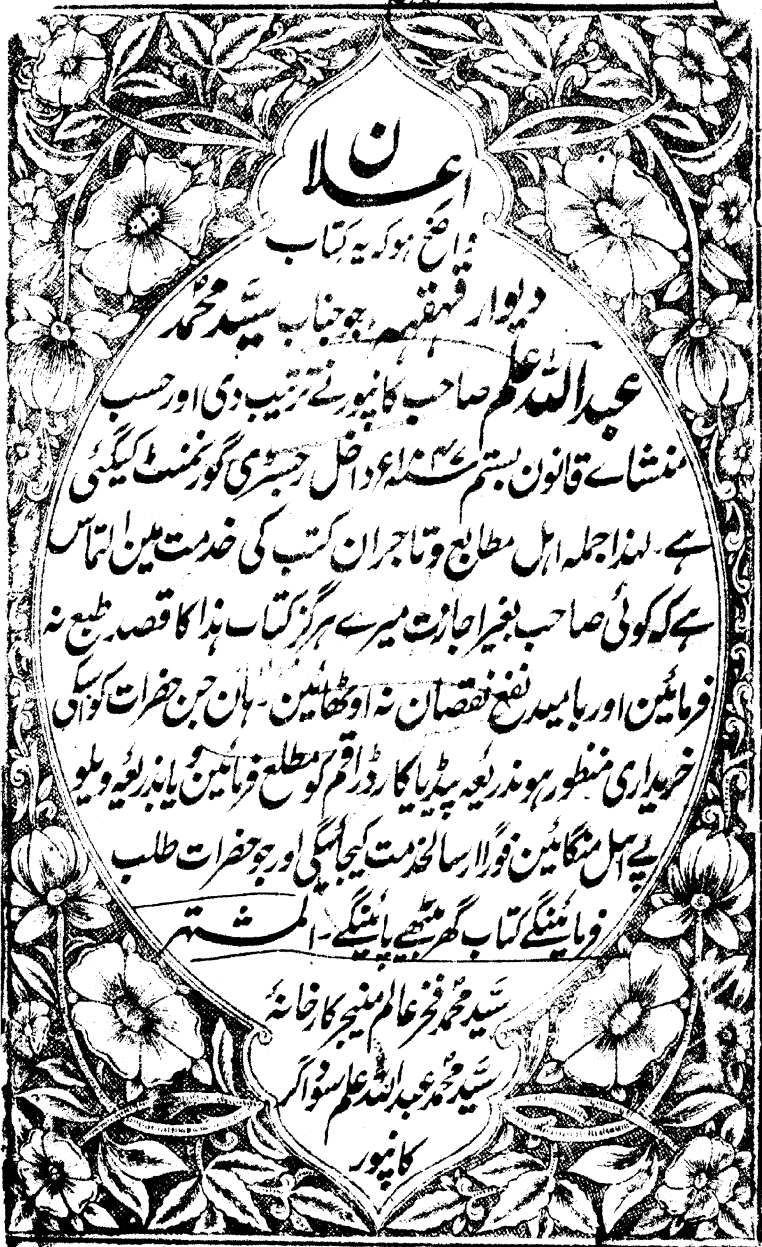 اعلان
واضح ہو کہ یہ کتاب
دیوار قہقہہ جو جناب سید محمد
عبد اللہ علم صاحب کانپور نے ترتیب دی اور حسب
منشاے قانون بستم ۱۸۴۷ء داخل رجسٹری گورنمنٹ کیگئی
ہے۔ لہذا جملہ اہل مطابع و تاجران کتب کی خدمت مین التماس
ہے کہ کوئی صاحب بغیر اجازت میرے ہرگز کتاب ہذا کا قصد طبع نہ
فرمائین اور بامید نفع نقصان نہ اوٹھائین۔ ہان جن حضرات کو اسکی
خریداری منظور ہو بذریعہ پیڈ یا کارڈ راقم کو مطلع فرمائین و یا بذریعہ ویلو
پے ابل منگائین فوراً ارسالخدمت کیجائیگی اور جو حضرات طلب
فرمائینگے کتاب گھر بیٹھے پائینگے۔ المشتہر
سید محمد فخر عالم منیجر کارخانۂ
سید محمد عبد اللہ علم سوداگر
کانپور